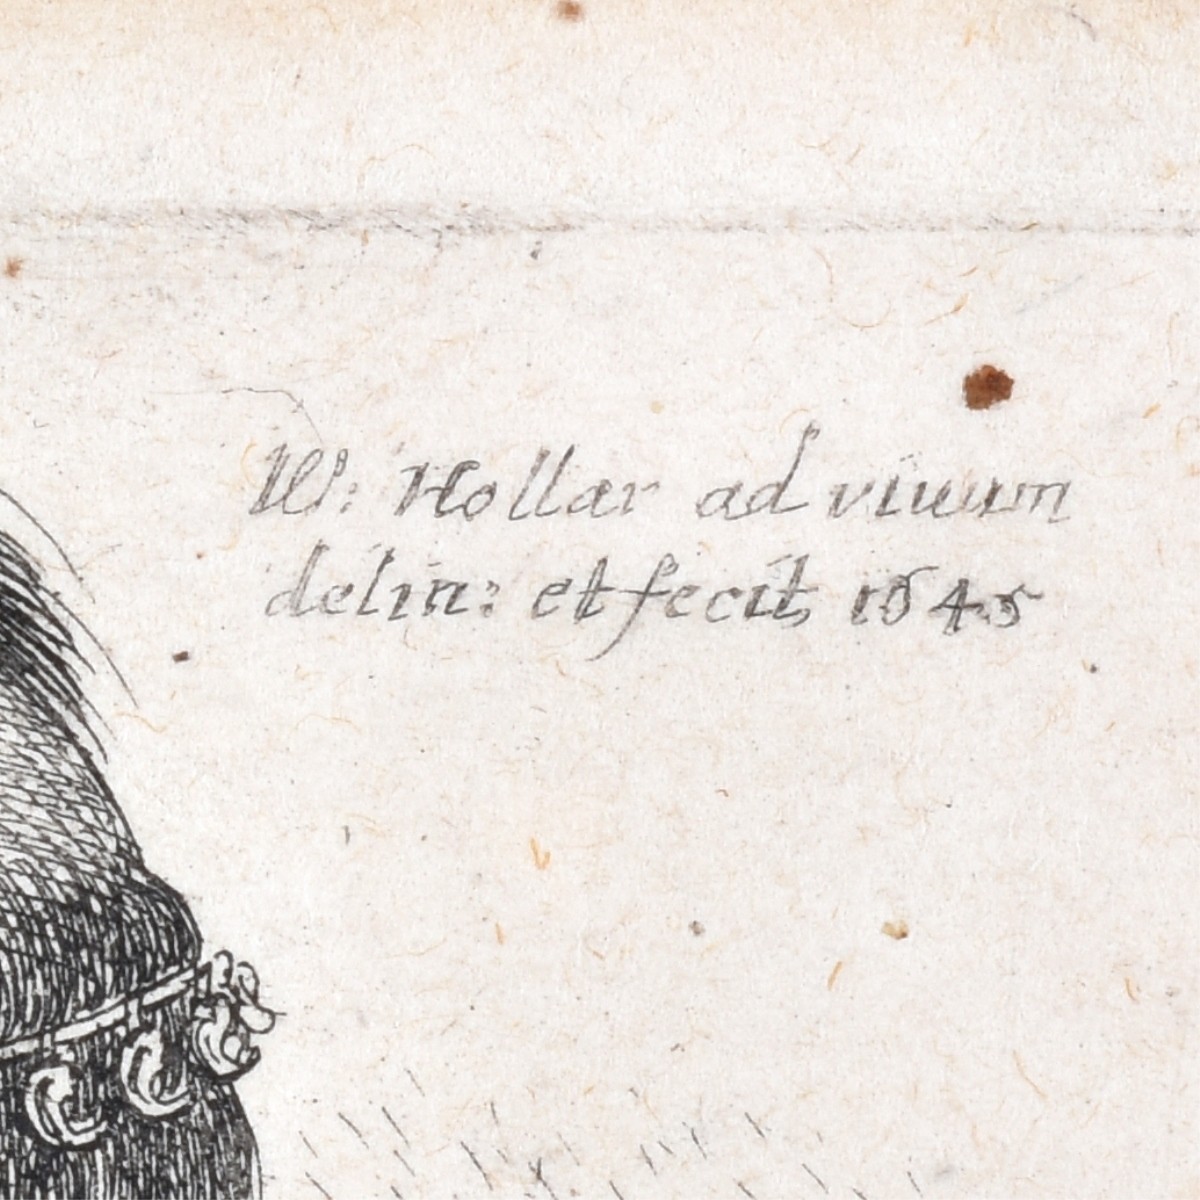 W: Hollar ad viuum
delin: et fecit, 1645